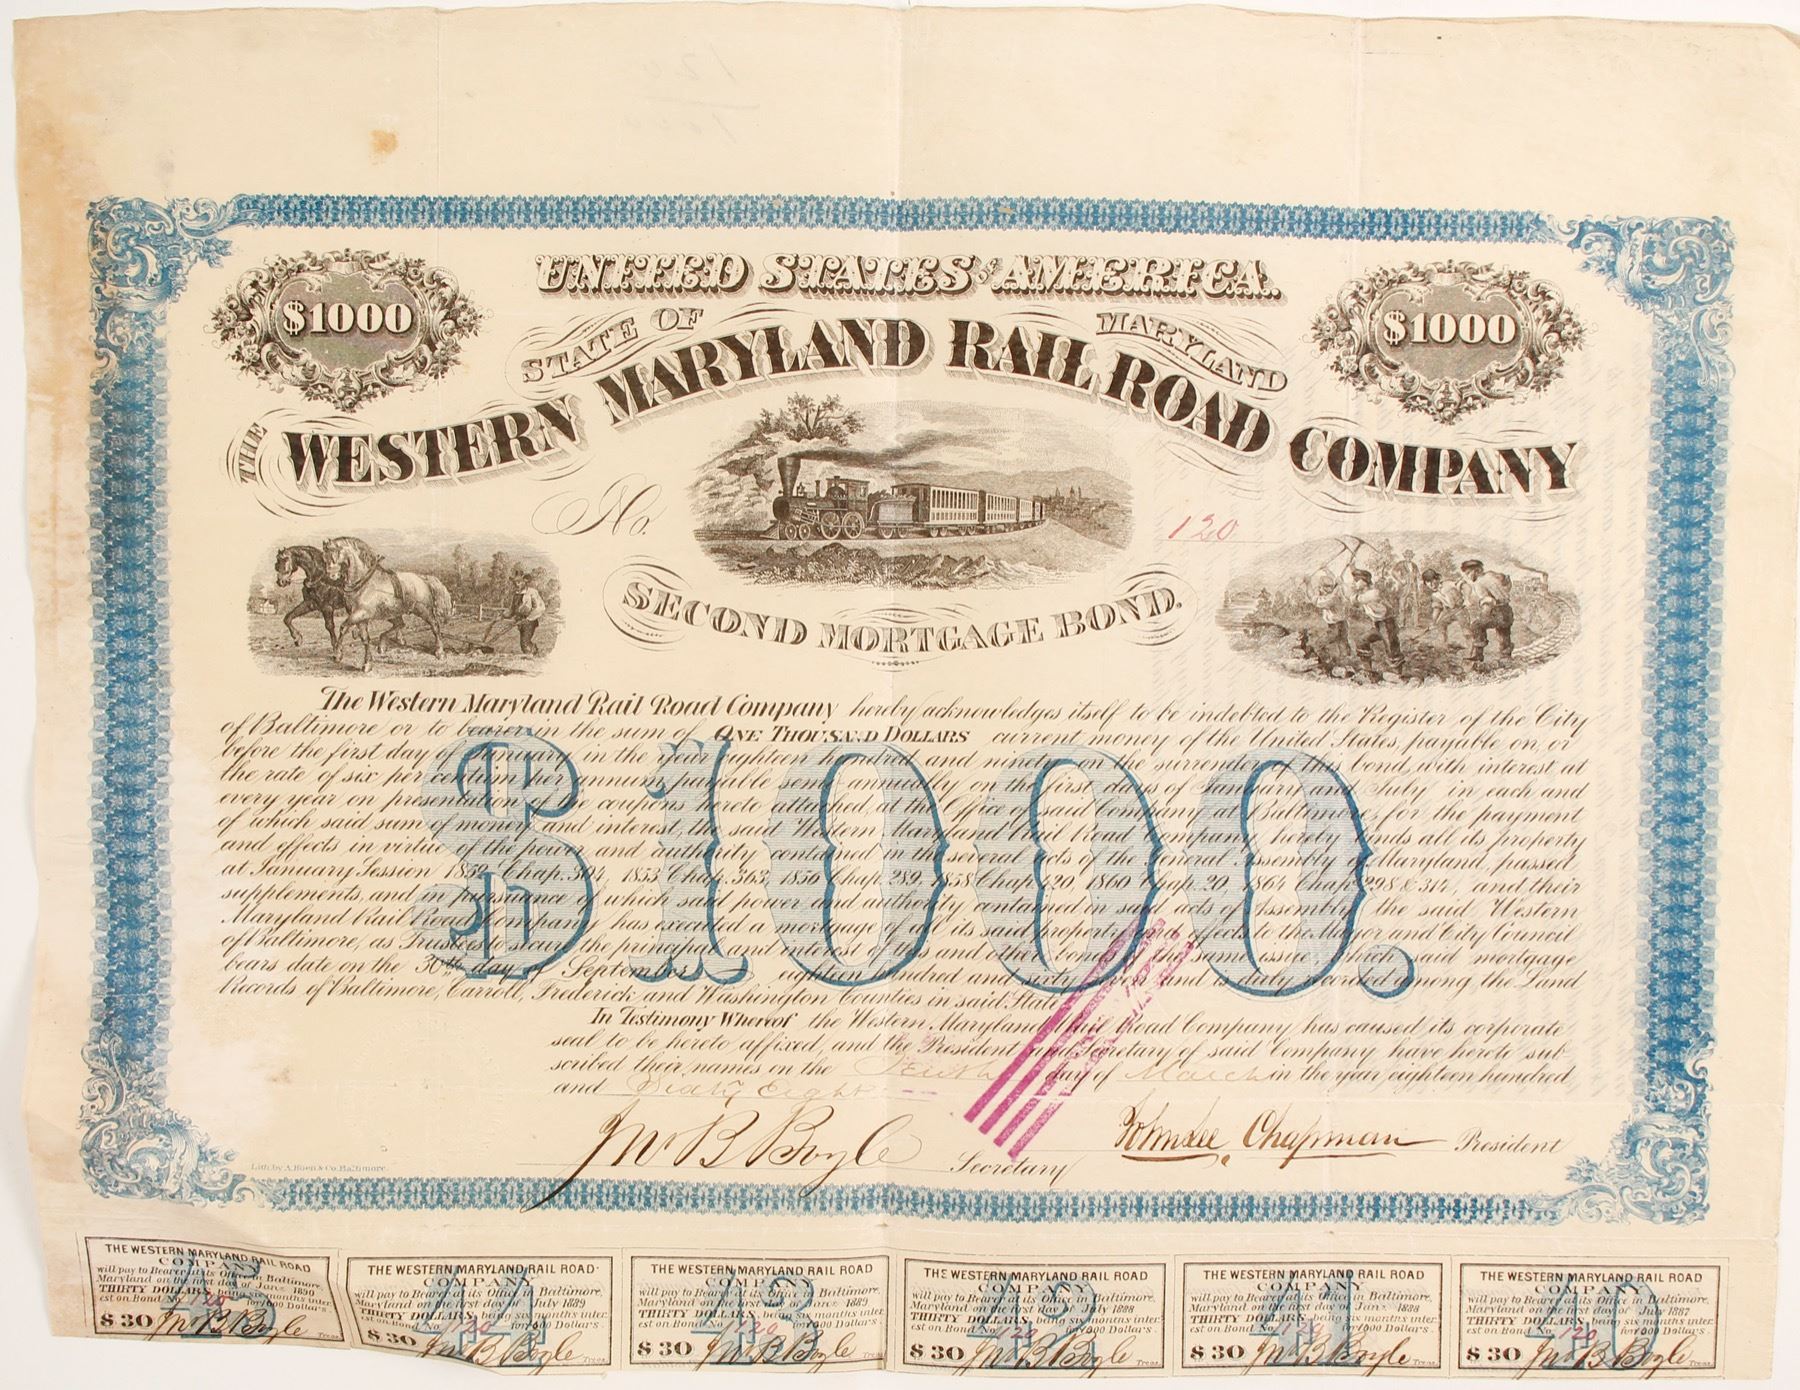 UNITED STATES OF AMERICA.
STATE OF MARYLAND
$1000
$1000
THE WESTERN MARYLAND RAIL ROAD COMPANY
No. 120
SECOND MORTGAGE BOND.
The Western Maryland Rail Road Company hereby acknowledges itself to be indebted to the Register of the City
of Baltimore or to bearer in the sum of ONE THOUSAND DOLLARS current money of the United States, payable on, or
before the first day of January in the year eighteen hundred and ninety on the surrender of this bond, with interest at
the rate of six per centum per annum, payable semi-annually on the first days of January and July in each and
every year on presentation of the coupons hereto attached, at the Office of said Company at Baltimore, for the payment
of which said sum of money and interest, the said Western Maryland Rail Road Company hereby binds all its property
and effects in virtue of the power and authority contained in the several acts of the General Assembly of Maryland, passed
at January Session 1852 Chap. 304, 1853 Chap. 363, 1856 Chap. 289, 1858 Chap. 120, 1860 Chap. 20, 1864 Chap. 298 & 314, and their
supplements, and in pursuance of which said power and authority contained in said acts of Assembly, the said Western
Maryland Rail Road Company has executed a mortgage of all its said property and effects to the Mayor and City Council
of Baltimore, as Trustees to secure the principal and interest of this and other bonds of the same issue, which said mortgage
bears date on the 30th day of September eighteen hundred and sixty seven and is duly recorded among the Land
Records of Baltimore, Carroll, Frederick and Washington Counties in said State.
$1000.
In Testimony Whereof the Western Maryland Rail Road Company has caused its corporate
seal to be hereto affixed, and the President and Secretary of said Company have hereto sub-
scribed their names on the Tenth day of March in the year eighteen hundred
and Sixty Eight
Jno B Boyle Secretary
John Lee Chapman President
Lith. by A. Hoen & Co. Baltimore.
THE WESTERN MARYLAND RAIL ROAD
COMPANY
will pay to Bearer at its Office in Baltimore,
Maryland on the first day of Jan. 1890
THIRTY DOLLARS, being six months inter-
est on Bond No. 120 for 1000 Dollars
$30 Jno B Boyle Treas.
45
THE WESTERN MARYLAND RAIL ROAD
COMPANY
will pay to Bearer at its Office in Baltimore,
Maryland on the first day of July 1889
THIRTY DOLLARS, being six months inter-
est on Bond No. 120 for 1000 Dollars
$30 Jno B Boyle Treas.
44
THE WESTERN MARYLAND RAIL ROAD
COMPANY
will pay to Bearer at its Office in Baltimore,
Maryland on the first day of Jan. 1889
THIRTY DOLLARS, being six months inter-
est on Bond No. 120 for 1000 Dollars
$30 Jno B Boyle Treas.
43
THE WESTERN MARYLAND RAIL ROAD
COMPANY
will pay to Bearer at its Office in Baltimore,
Maryland on the first day of July 1888
THIRTY DOLLARS, being six months inter-
est on Bond No. 120 for 1000 Dollars
$30 Jno B Boyle Treas.
42
THE WESTERN MARYLAND RAIL ROAD
COMPANY
will pay to Bearer at its Office in Baltimore,
Maryland on the first day of Jan. 1888
THIRTY DOLLARS, being six months inter-
est on Bond No. 120 for 1000 Dollars
$30 Jno B Boyle Treas.
41
THE WESTERN MARYLAND RAIL ROAD
COMPANY
will pay to Bearer at its Office in Baltimore,
Maryland on the first day of July 1887
THIRTY DOLLARS, being six months inter-
est on Bond No. 120 for 1000 Dollars
$30 Jno B Boyle Treas.
40